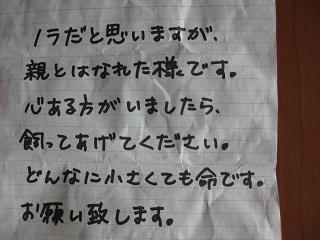 ノラだと思いますが、
親とはなれた様です。
心ある方がいましたら、
飼ってあげてください。
どんなに小さくても命です。
お願い致します。